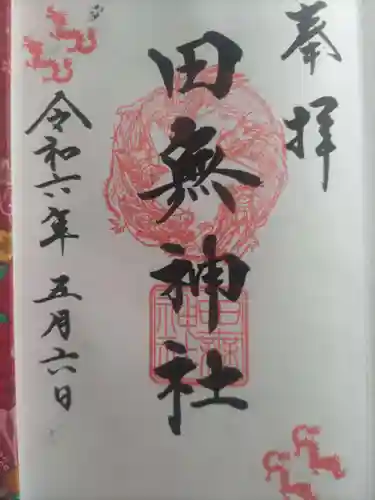 奉拝
田無神社
令和六年五月六日